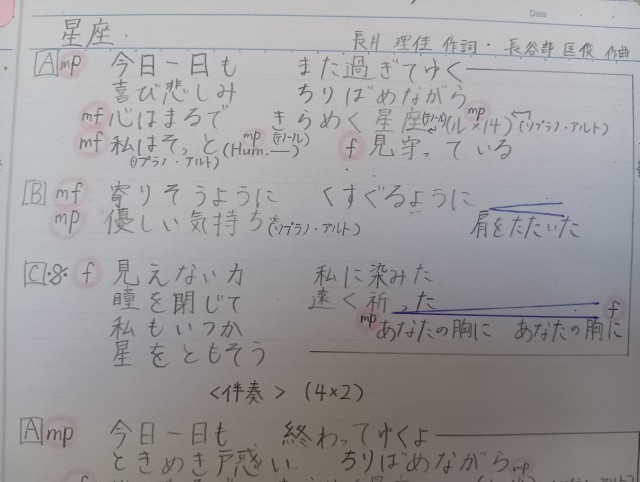 Date
星座.
長井 理佳 作詞・長谷部 匡俊 作曲
A mp 今日一日も また過ぎてゆく
喜び悲しみ ちりばめながら
mf 心はまるで きらめく星座(テノール)(ル×14) mp (ソプラノ・アルト)
mf 私はそっと(Hum.―) mp (テノール) f 見守っている
(ソプラノ・アルト)
B mf 寄りそうように くすぐるように
mp 優しい気持ち(ソプラノ・アルト) 肩をたたいた
C f 見えない力 私に染みた
瞳を閉じて 遠く祈った
私もいつか mp あなたの胸に あなたの胸に f
星をともそう
<伴奏> (4×2)
A mp 今日一日も 終わってゆくよ
ときめき戸惑い ちりばめながら mp